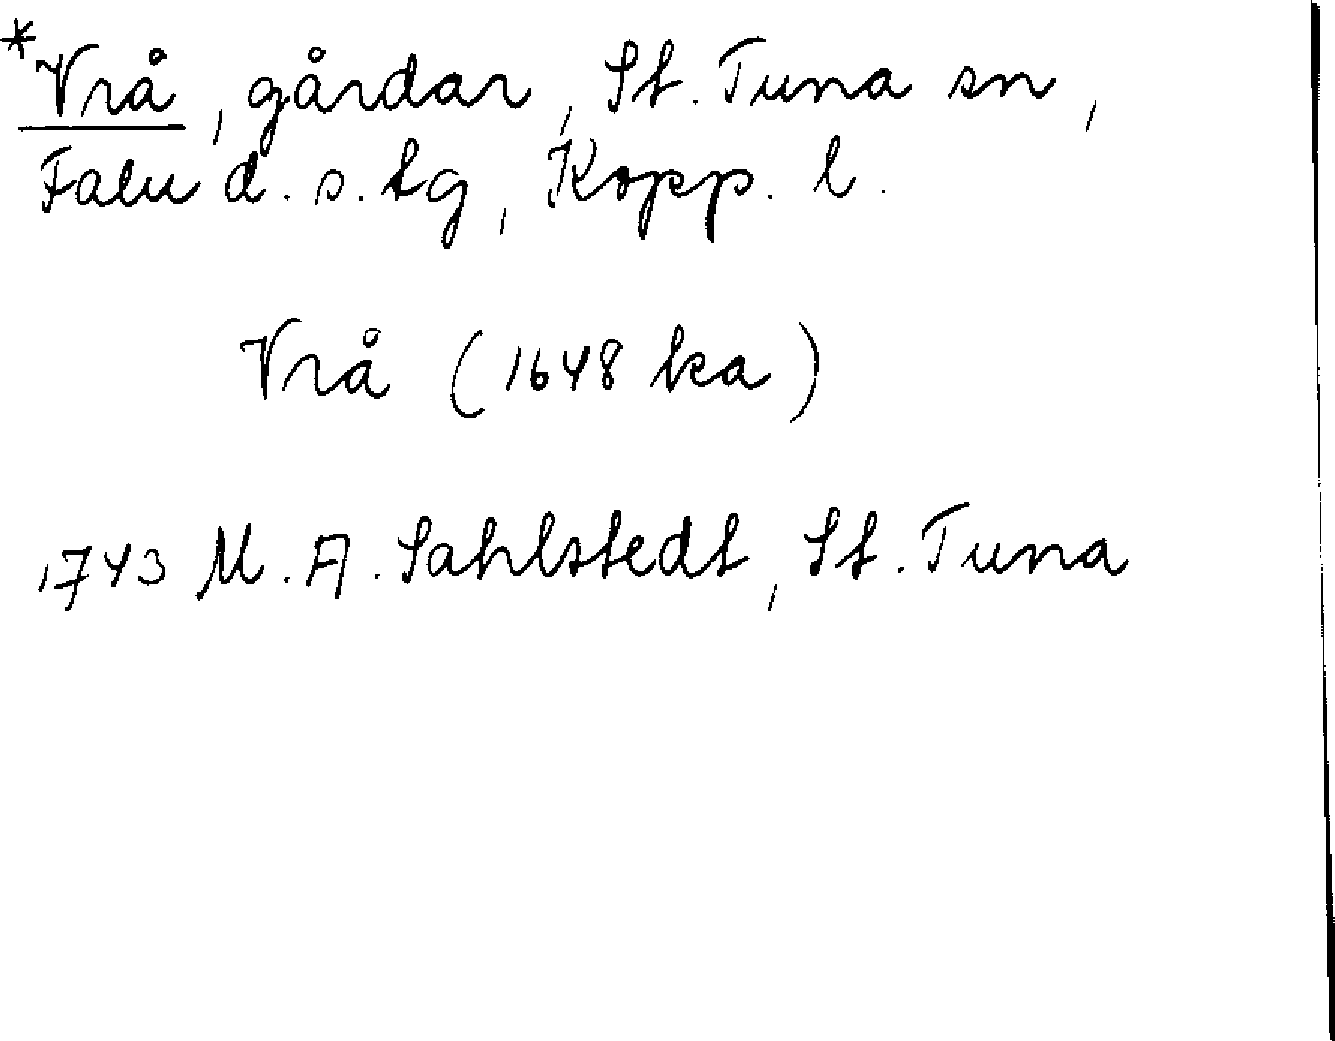 *Vrå, gårdar, St. Tuna sn,
Falu d.s. tg, Kopp. l.
Vrå (1648 ka)
1743 M. A. Sahlstedt, St. Tuna